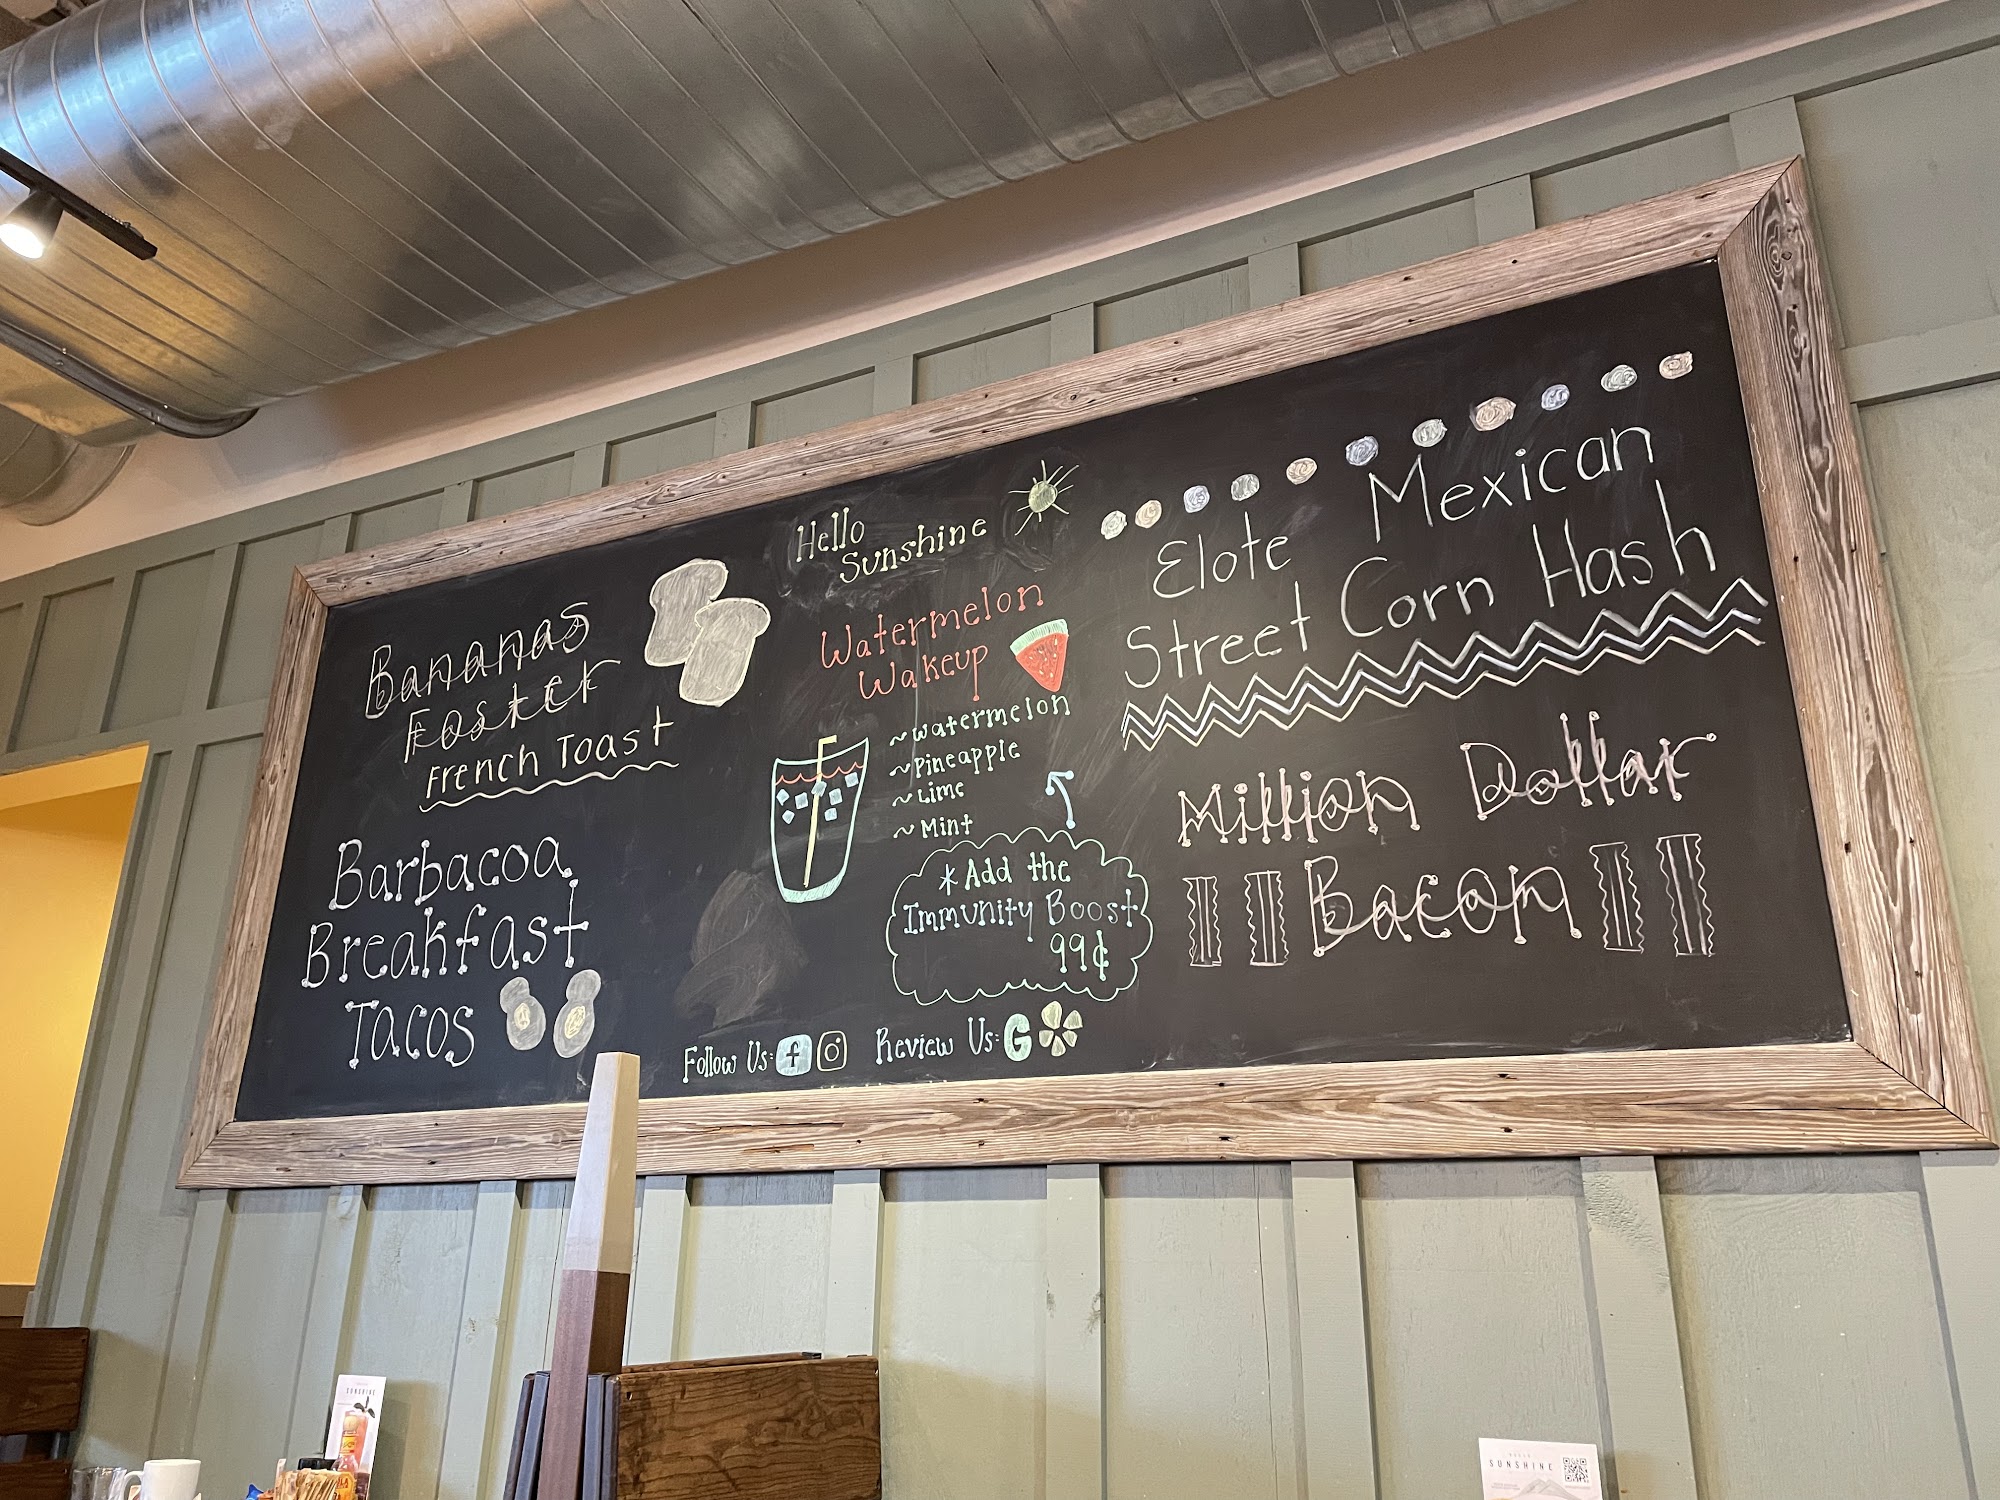 Bananas
Foster
French Toast
Barbacoa
Breakfast
Tacos
Hello
Sunshine
Watermelon
Wakeup
~watermelon
~Pineapple
~Lime
~Mint
*Add the
Immunity Boost
99¢
Follow Us: f
Review Us: G
Elote Mexican
Street Corn Hash
Million Dollar
Bacon
SUNSHINE
SUNSHINE